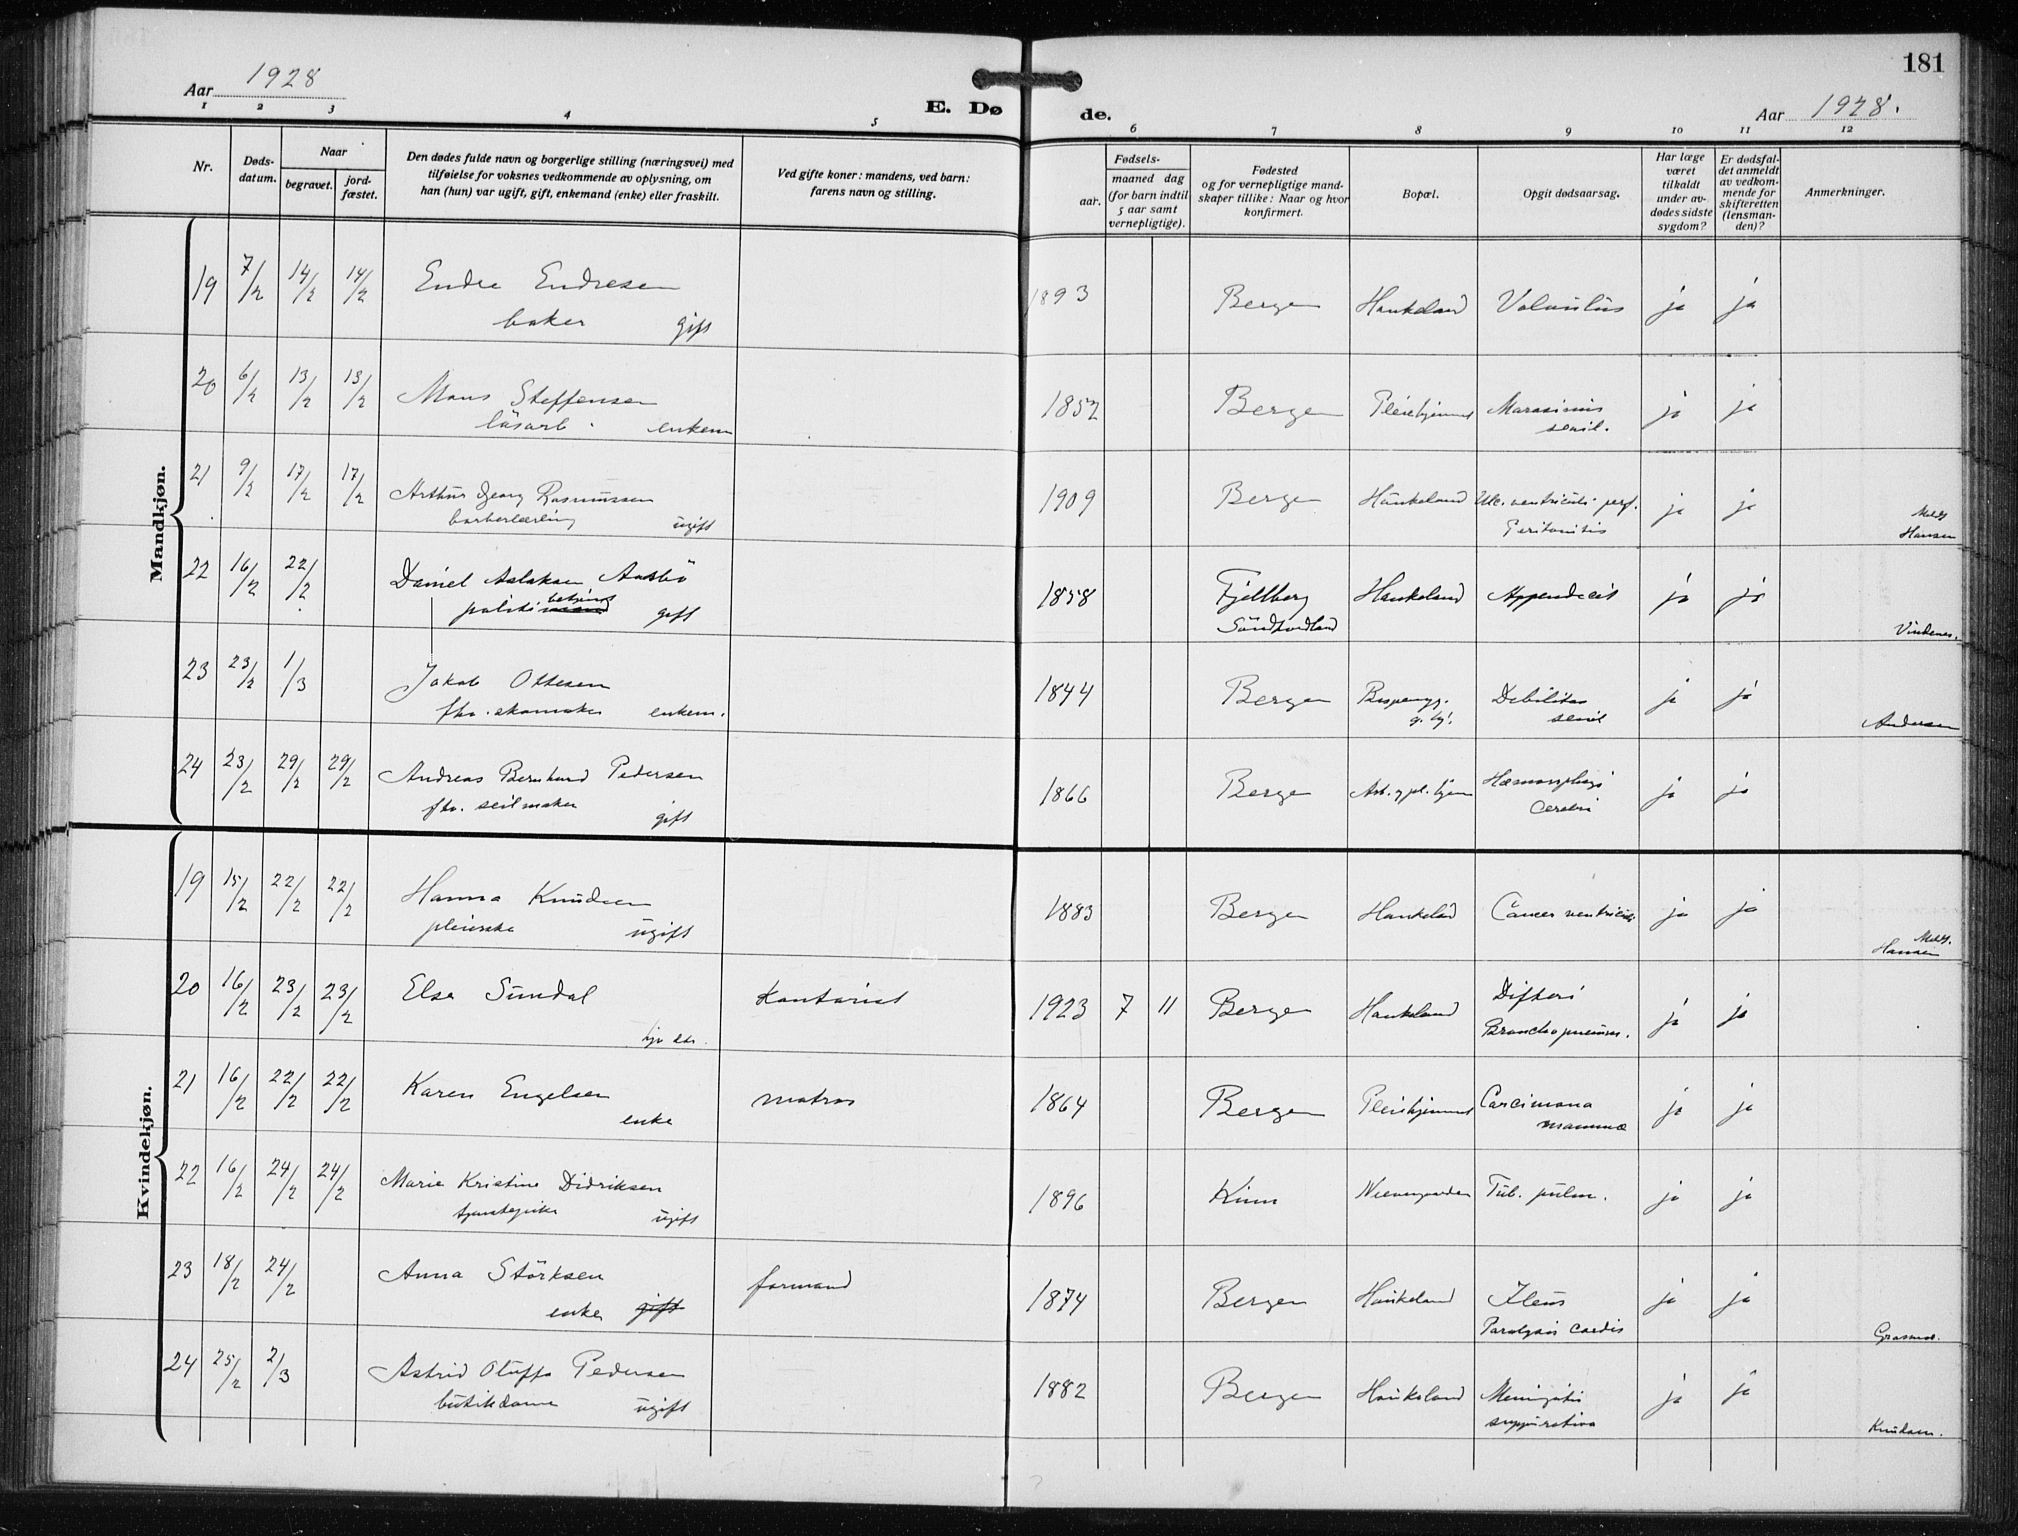 181
Aar 1928
E. Døde.
Aar 1928.
1 2 3 4 5 6 7 8 9 10 11 12
Nr.
Dødsdatum.
Naar
begravet.
jordfæstet.
Den dødes fulde navn og borgerlige stilling (næringsvei) med
tilføielse for voksnes vedkommende av oplysning, om
han (hun) var ugift, gift, enkemand (enke) eller fraskilt.
Ved gifte koner: mandens, ved barn:
farens navn og stilling.
Fødsels-
aar.
maaned dag
(for barn indtil
5 aar samt
vernepligtige).
Fødested
og for vernepligtige mand-
skaper tillike: Naar og hvor
konfirmert.
Bopæl.
Opgit dødsaarsag.
Har læge
været
tilkaldt
under av-
dødes sidste
sygdom?
Er dødsfal-
det anmeldt
av vedkom-
mende for
skifteretten
(lensman-
den)?
Anmerkninger.
Mandkjøn.
19 7/2 14/2 14/2 Endre Endresen 1893 Bergen Haukeland Volvulus ja ja
baker gift
20 6/2 13/2 13/2 Mons Steffensen 1852 Bergen Pleiehjemmet Marasmus ja ja
løsarb. enkem senil.
21 9/2 17/2 17/2 Arthur Georg Rasmussen 1909 Bergen Haukeland Ulc. ventriculi perf. ja ja
barberlærling ugift Peritonitis Hansen
22 16/2 22/2 Daniel Aslaksen 1858 Fjellberg Haukeland Appendicit ja ja
politi betjent gift Søndhordland Vindenes.
23 23/2 1/3 Jakob Ottesen 1844 Bergen Debilitas ja ja
fhv. skomaker enkem. senil Andersen
24 23/2 29/2 29/2 Andreas Bernhard Pedersen 1866 Bergen Hæmorrhagi ja ja
fhv. seilmaker gift Cerebri
Kvindekjøn.
19 15/2 22/2 22/2 Hanna Knudsen 1883 Bergen Haukeland Cancer ventriculi ja ja
pleierske ugift Hansen
20 16/2 23/2 23/2 Else Sundal Kontorist 1923 7 11 Bergen Haukeland Difteri ja ja
Bronchopneumon.
21 16/2 22/2 22/2 Karen Engelsen matros 1864 Bergen Pleiehjemmet Carcimona ja ja
enke mammæ
22 16/2 24/2 24/2 Marie Kristine Didriksen 1896 Kinn Tub. pulm. ja ja
tjenstepike ugift
23 18/2 24/2 Anna Störksen formand 1874 Bergen Haukeland Ileus ja ja
enke gift Paralysis cordis
24 25/2 2/3 Astrid Oluffa Pedersen 1882 Bergen Haukeland Meningitis ja ja
butikdame ugift suppurativa Knudsen.